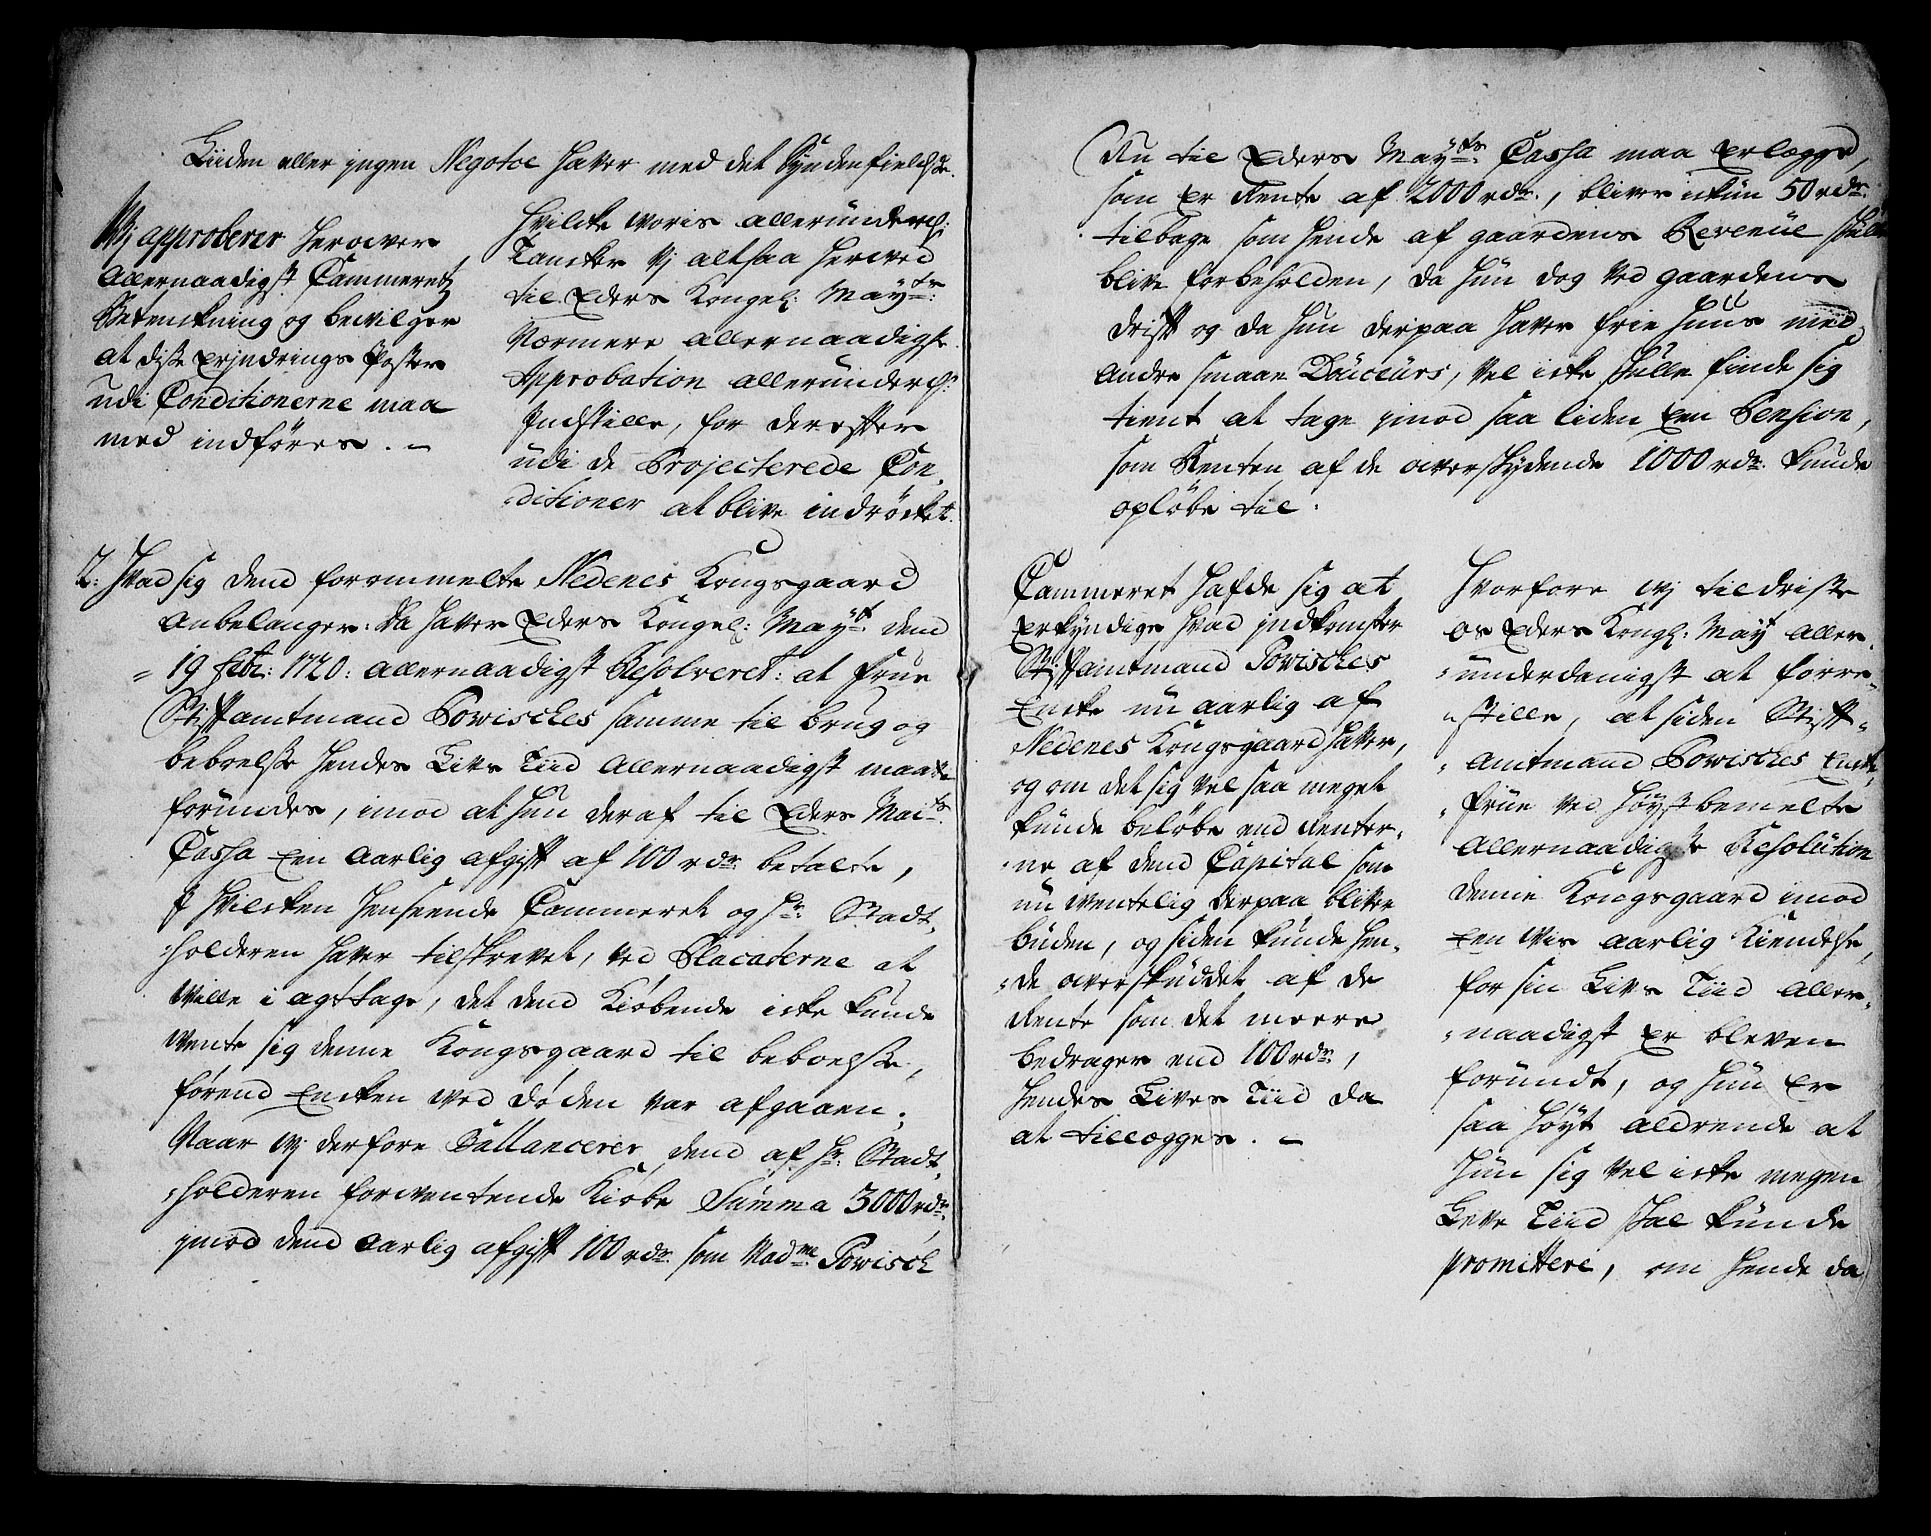 Liiden eller jngen Negotce haver med det Syndenfieldske.
Wj approberer herover
Allernaadigst Cammeretz
Betenkning og bevilger
at diße erjndrings Poster
udi Conditionerne maa
med indføres. –
hvilcke woris allerunderd:
Tancker wj altsaa herved
til Eders Kongel: Mayts:
Nærmere allernaadigste
Approbation allerunderd:
Indstille, for derefter
udi de Projecterede Con-
-ditioner at blive indrøcket.
2: Hvad sig dend forommelte Nedenes Kongsgaard
Anbelanger: da haver Eders Kongel: Mayt: dend
- 19 Febr: 1720: allernaadigst Resolveret: at Frue
Stiftamtmand Powisches samme til brug og
beboelße hendes Livs Tiid Allernaadigst maatte
forundes, imod at hun deraf til Eders Maits:
Cassa Een Aarlig afgift af 100 rdr: betalte,
I hvilcken henseende Cammeret og Hr: Stadt-
-holderen haver tilskrevet, ved Placaterne at
wille i agt tage, det dend Kiøbende icke kunde
wente sig denne Kongsgaard til beboelße,
førend Encken ved døden var afgaaen;
Naar wj derfore Ballancerer dend af Hr: Stadt-
-holderen forwentende Kiøbe Summa 3000 rdr:
jmod dend aarlig afgift 100 rdr: som Madme: Powisch
Nu til Eders Mayts: Cassa maa Erlægge,
som Er Rente af 2000 rdr:, bliver ickun 50 rdr:
tilbage som hende af gaardens Revenüe skulle
blive forbeholden, da hun dog ved gaardens
drift og da hun derpaa haver frie Huus med
Andre smaae Douceurs, vel icke skulle finde sig
tient at tage jmod saa liden Een Pension,
som Renten af de overskydende 1000 rdr: kunde
opløbe til.
Cammeret hafde sig at
Erkyndige hvad jndkomster
Stiftamtmand Powisches
Encke nu aarlig af
Nedenes Kongsgaard haver,
og om det sig vel saa meget
kunde beløbe end Renter-
-ne af dend Capital som
nu wentelig derpaa blive
buden, og siden kunde hen-
-de overskuddet af de
Rente som det meere
bedrager end 100 rdr:,
hendes Lives Tiid da
at tillegges. –
Hvorfore wj tildriste
os Eders Kongl: Mayt Aller-
-underdanigst at forre-
-stille, at siden Stift-
-Amtmand Powisches Encke
-Frue ved høystbemelte
Allernaadigste Resolution
denne Kongsgaard imod
Een wis aarlig Kiendelse,
for sin Livs Tiid Aller-
-naadigst Er bleven
forundt, og hun Er
saa høyt aldrende at
hun sig vel icke megen
Leve Tiid skal kunde
promittere, om hende da